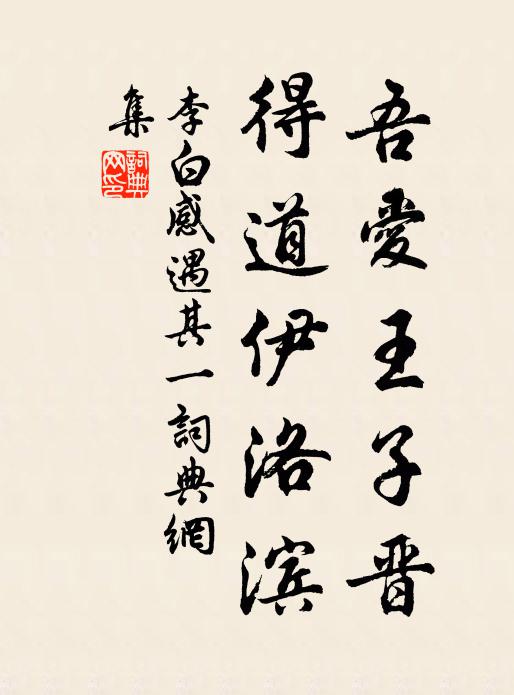 吾愛王子晋
得道伊洛滨
李白感遇其一詞典網
集
詞典网印